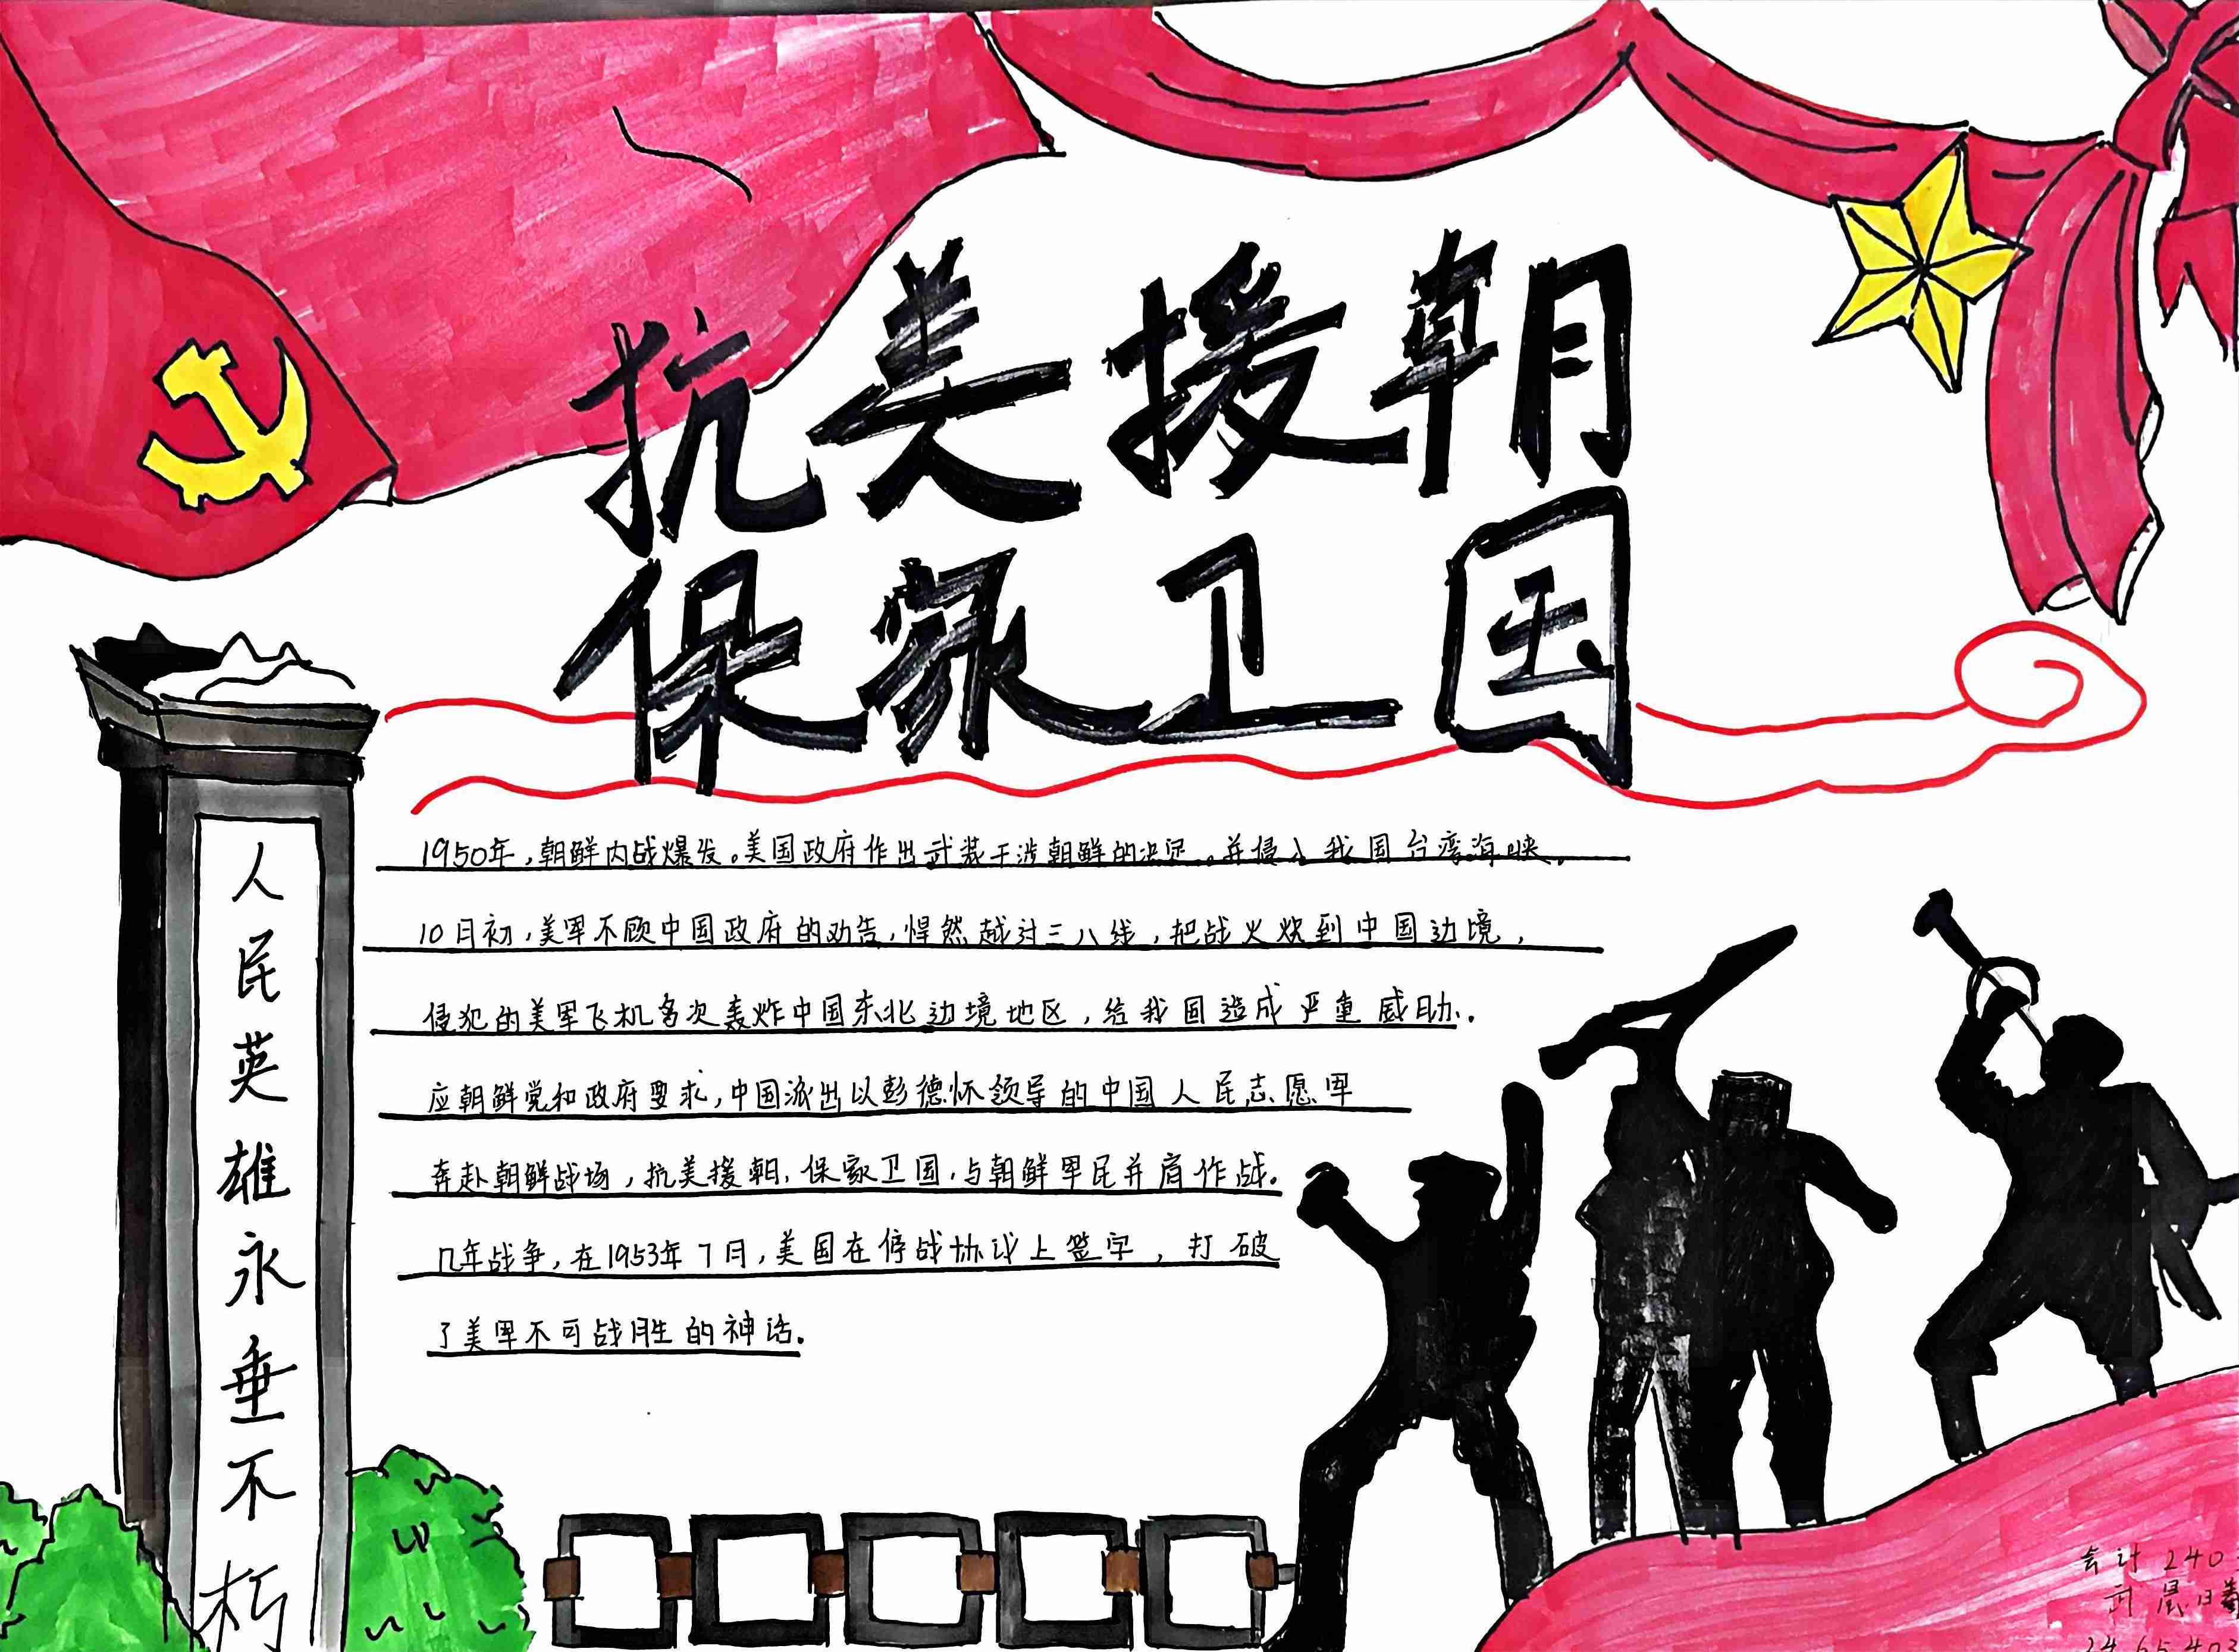 抗美援朝
保家卫国
人民英雄永垂不朽
1950年，朝鲜内战爆发。美国政府作出武装干涉朝鲜的决定。并侵入我国台湾海峡。
10月初，美军不顾中国政府的劝告，悍然越过三八线，把战火烧到中国边境，
侵犯的美军飞机多次轰炸中国东北边境地区，给我国造成严重威胁.
应朝鲜党和政府要求，中国派出以彭德怀领导的中国人民志愿军
奔赴朝鲜战场，抗美援朝，保家卫国，与朝鲜军民并肩作战.
几年战争，在1953年7月，美国在停战协议上签字，打破
了美军不可战胜的神话.
会计240